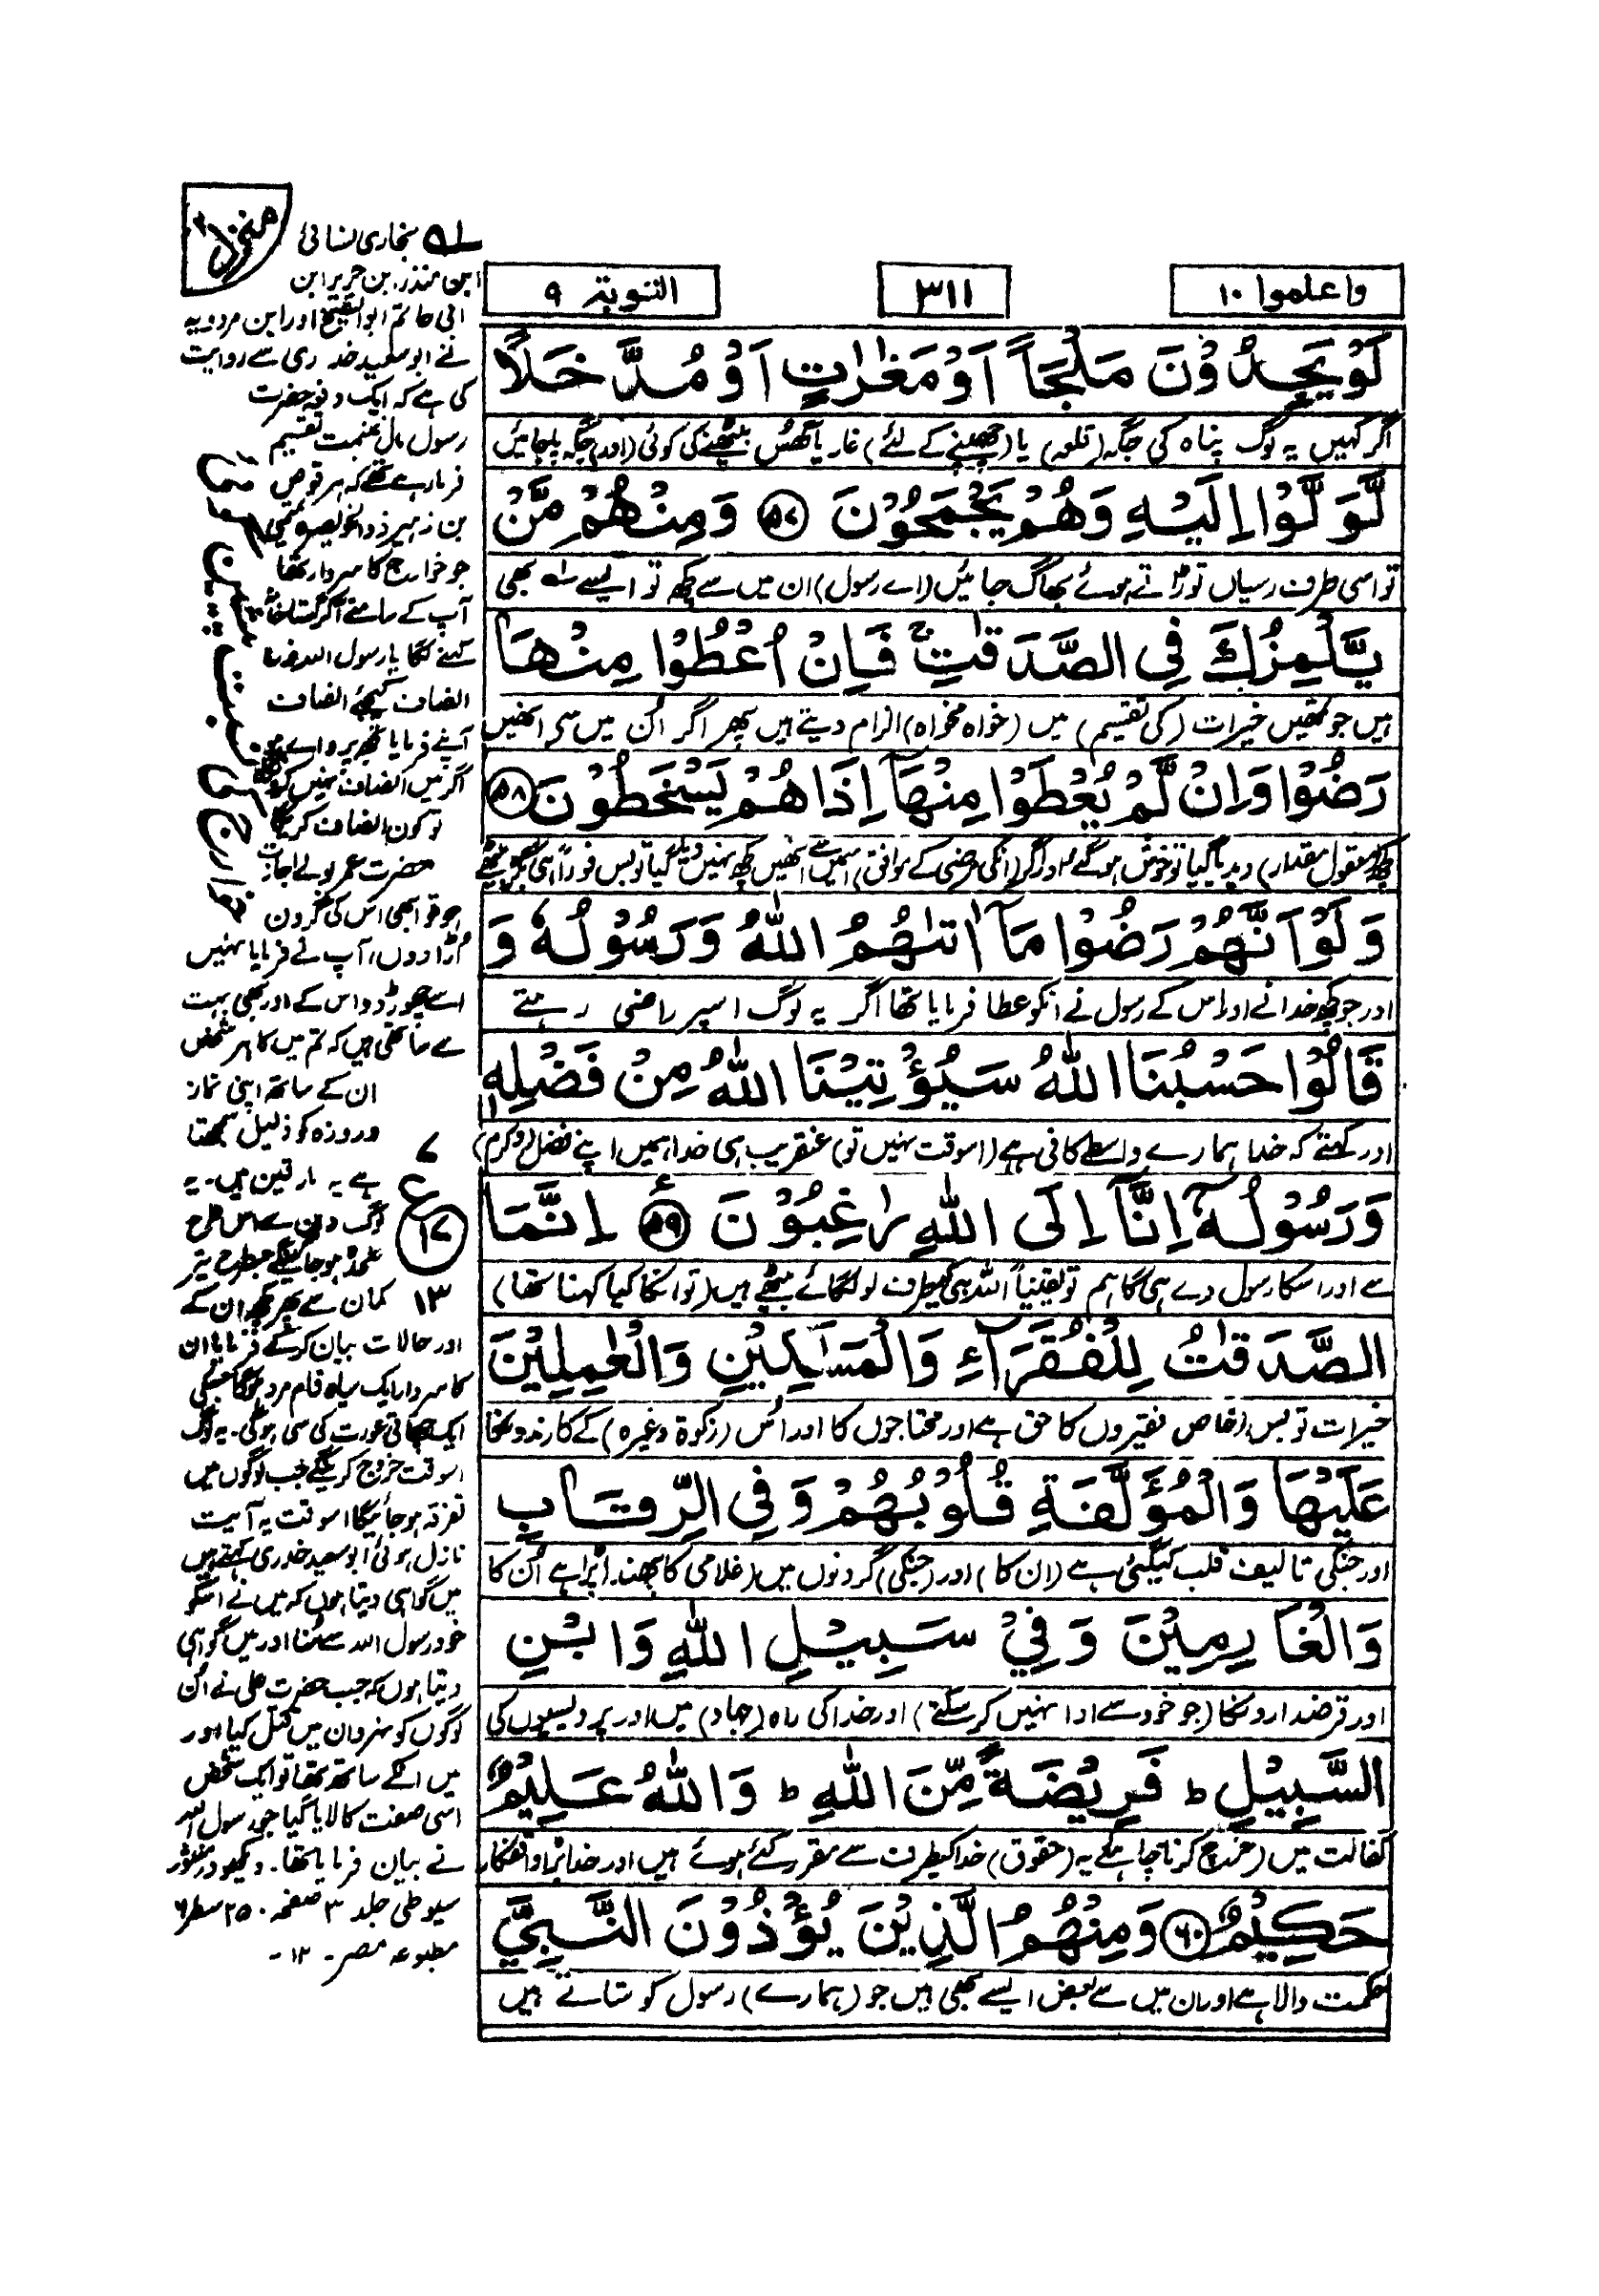 واعلموا ١٠
٣١١
التوبة ٩
لَوْ يَجِدُوْنَ مَلْجَاً اَوْ مَغٰرٰتٍ اَوْ مُدَّخَلًا
اگر کہیں یہ لوگ پناہ کی جگہ (قلعہ) یا (چھپنے کے لئے) غار یا گھس بیٹھنے کی کوئی (اور) جگہ پاجائیں
لَّوَلَّوْا اِلَيْهِ وَهُمْ يَجْمَحُوْنَ ﴿۵۷﴾ وَمِنْهُمْ مَّنْ
تو اسی طرف رسیاں توڑاتے ہوئے بھاگ جائیں (اے رسول) ان میں سے کچھ تو ایسے بھی
يَّلْمِزُكَ فِى الصَّدَقٰتِ ۚ فَاِنْ اُعْطُوْا مِنْهَا
ہیں جو تمھیں خیرات (کی تقسیم) میں (خواہ مخواہ) الزام دیتے ہیں پھر اگر اُن میں سے انھیں
رَضُوْا وَاِنْ لَّمْ يُعْطَوْا مِنْهَآ اِذَا هُمْ يَسْخَطُوْنَ ﴿۵۸﴾
کچھ (معقول مقدار) دیدیا گیا تو خوش ہوگئے اور اگر (انکی مرضی کے موافق) اسمیں سے انھیں کچھ نہیں دیا گیا تو بس فوراً ہی بگڑ بیٹھے
وَلَوْ اَنَّهُمْ رَضُوْا مَآ اٰتٰىهُمُ اللّٰهُ وَرَسُوْلُهٗ وَ
اور جو کچھ خدا نے اور اس کے رسول نے انکو عطا فرمایا تھا اگر یہ لوگ اسپر راضی رہتے
قَالُوْا حَسْبُنَا اللّٰهُ سَيُؤْتِيْنَا اللّٰهُ مِنْ فَضْلِهٖ
اور کہتے کہ خدا ہمارے واسطے کافی ہے (اسوقت نہیں تو) عنقریب ہی خدا ہمیں اپنے فضل (و کرم)
وَرَسُوْلُهٗٓ اِنَّآ اِلَى اللّٰهِ رٰغِبُوْنَ ﴿۵۹﴾ اِنَّمَا
سے اور اسکا رسول دے ہی گا ہم تو یقیناً اللہ ہی کیطرف لو لگائے بیٹھے ہیں (تو انکا کیا کہنا تھا)
الصَّدَقٰتُ لِلْفُقَرَآءِ وَالْمَسٰكِيْنِ وَالْعٰمِلِيْنَ
خیرات تو بس (خاص) فقیروں کا حق ہے اور محتاجوں کا اور اُس (زکوٰۃ وغیرہ) کے کارندونکا
عَلَيْهَا وَالْمُؤَلَّفَةِ قُلُوْبُهُمْ وَفِى الرِّقَابِ
اور جنکی تالیف قلب کیگئی ہے (ان کا) اور (جنکی) گردنوں میں (غلامی کا پھندا پڑا ہے اُن کا
وَالْغَارِمِيْنَ وَفِيْ سَبِيْلِ اللّٰهِ وَابْنِ
اور قرضدارونکا (جو خود سے ادا نہیں کرسکتے) اور خدا کی راہ (جہاد) میں اور پردیسیوں کی
السَّبِيْلِ ؕ فَرِيْضَةً مِّنَ اللّٰهِ ؕ وَاللّٰهُ عَلِيْمٌ
کفالت میں (خرچ کرنا چاہئے یہ (حقوق) خدا کیطرف سے مقرر کئے ہوئے ہیں اور خدا بڑا واقفکار
حَكِيْمٌ ﴿۶۰﴾ وَمِنْهُمُ الَّذِيْنَ يُؤْذُوْنَ النَّبِيَّ
حکمت والا ہے اور ان میں سے بعض ایسے بھی ہیں جو (ہمارے) رسول کو ستاتے ہیں
منزل ٢
بخاری نسائی
ابن منذر، بن جریر ابن
ابی حاتم ابو الشیخ اور ابن مردویہ
نے ابو سعید خدری سے روایت
کی ہے کہ ایک دفعہ حضرت
رسول مال غنیمت تقسیم
فرمارہے تھے کہ حرقوص
بن زہیر ذوالخویصرہ تمیمی
جو خوارج کا سردار تھا
آپ کے سامنے آکر گستاخانہ
کہنے لگا یا رسول اللہ ذرا
انصاف کیجئے انصاف
آپنے فرمایا تجھپر وائے ہو
اگر میں انصاف نہیں کرونگا
تو کون انصاف کریگا
حضرت عمر بولے اجازت
ہو تو ابھی اس کی گردن
اُڑا دوں، آپ نے فرمایا نہیں
اسے چھوڑ دو اس کے اور بھی بہت
سے ساتھی ہیں کہ تم میں کا ہر شخص
ان کے ساتھ اپنی نماز
و روزہ کو ذلیل سمجھتا
ہے یہ مارقین ہیں۔ یہ
لوگ دین سے اس طرح
علیحدہ ہوجائینگے جسطرح تیر
کمان سے پھر کچھ ان کے
اور حالات بیان کرکے فرمایا ان
کا سردار ایک سیاہ فام مرد ہوگا جسکی
ایک چھاتی عورت کی سی ہوگی۔ یہ لوگ
اسوقت خروج کرینگے جب لوگوں میں
تفرقہ ہوجائیگا اسوقت یہ آیت
نازل ہوئی ابو سعید خدری کہتے ہیں
میں گواہی دیتا ہوں کہ میں نے اسکو
خود رسول اللہ سے سُنا اور میں گواہی
دیتا ہوں کہ جب حضرت علی نے اُن
لوگوں کو نہروان میں قتل کیا اور
میں انکے ساتھ تھا تو ایک شخص
اسی صفت کا لایا گیا جو رسول اللہ
نے بیان فرمایا تھا۔ دیکھو در منثور
سیوطی جلد ۳ صفحہ ۲۵۰ سطر ۶
مطبوعہ مصر۔ ۱۲۔
ع
١٧
١٣